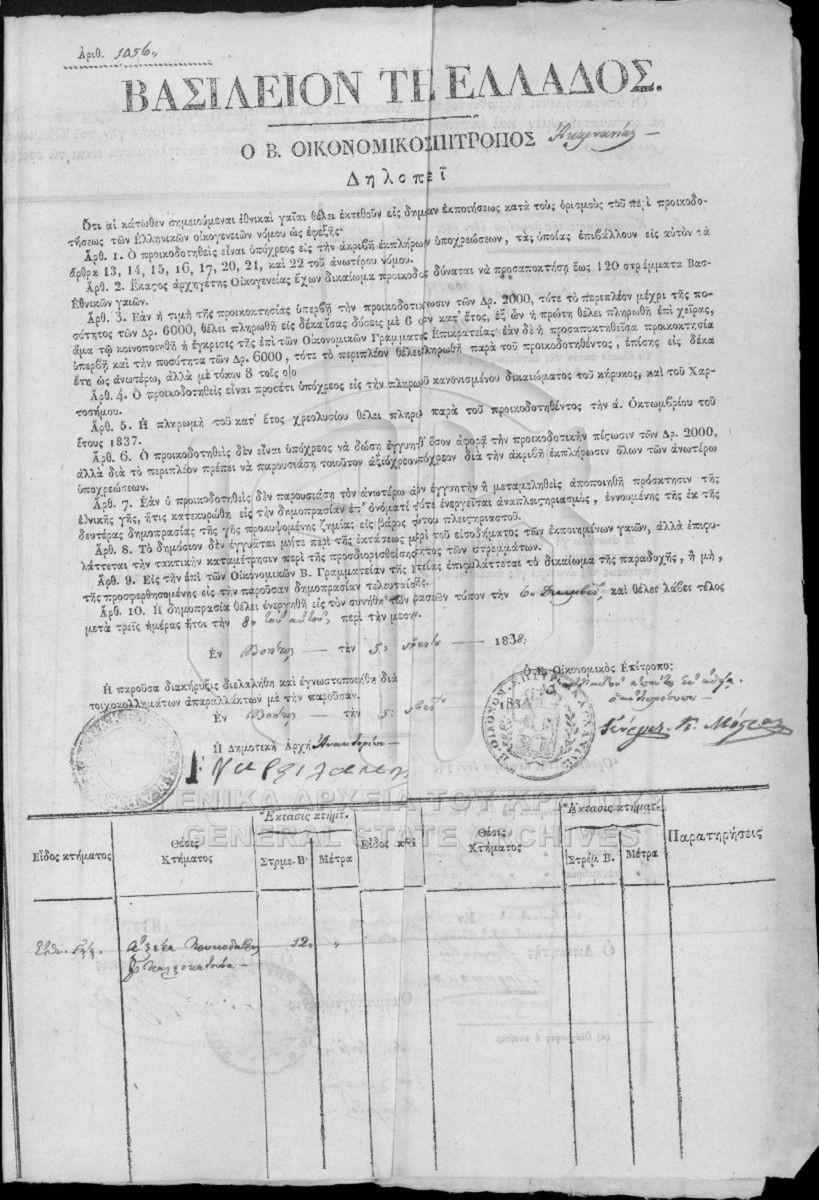 Ἀριθ. 1056
ΒΑΣΙΛΕΙΟΝ ΤΗ ΕΛΛΑΔΟΣ.
Ο Β. ΟΙΚΟΝΟΜΙΚΟΣ ΠΙΤΡΟΠΟΣ Ἀκαρνανίας
Δηλοπεῖ
Ὅτι αἱ κάτωθεν σημειούμεναι ἐθνικαὶ γαῖαι θέλει ἐκτεθοῦν εἰς δημαν ἐκποιήσεως κατὰ τοὺς ὁρισμοὺς τοῦ περὶ προικοδο-
τήσεως τῶν Ἑλληνικῶν οἰκογενειῶν νόμου ὡς ἐφεξῆς·
Ἀρθ. 1. Ὁ προικοδοτηθεὶς εἶναι ὑπόχρεος εἰς τὴν ἀκριβῆ ἐκπλήρων ὑποχρεώσεων, τὰς ὁποίας ἐπιβάλλουν εἰς αὐτὸν τὰ
ἄρθρα 13, 14, 15, 16, 17, 20, 21, καὶ 22 τοῦ ἀνωτέρω νόμου.
Ἀρθ. 2. Ἕκαστος ἀρχηγέτης Οἰκογενείας ἔχων δικαίωμα προικοδος δύναται νὰ προσαποκτήσῃ ἕως 120 στρέμματα Βασ-
Ἐθνικῶν γαιῶν.
Ἀρθ. 3. Ἐὰν ἡ τιμὴ τῆς προικοκτησίας ὑπερβῇ τὴν προικοδοτικωσιν τῶν Δρ. 2000, τότε τὸ περιπλέον μέχρι τῆς πο-
σότητος τῶν Δρ. 6000, θέλει πληρωθῆ εἰς δέκα ἴσας δόσεις μὲ 6 ον κατ' ἔτος, ἐξ ὧν ἡ πρώτη θέλει πληρωθῆ ἐπὶ χεῖρας,
ἅμα τῷ κοινοποιηθῇ ἡ ἔγκρισις τῆς ἐπὶ τῶν Οἰκονομικῶν Γραμματε Ἐπικρατείας· ἐὰν δὲ ἡ προσαποκτηθεῖσα προικοκτησία
ὑπερβῇ καὶ τὴν ποσότητα τῶν Δρ. 6000, τότε τὸ περιπλέον θέλει πληρωθῆ παρὰ τοῦ προικοδοτηθέντος, ἐπίσης εἰς δέκα
ἔτη ὡς ἀνωτέρω, ἀλλὰ μὲ τόκον 8 τοῖς ο)ο
Ἀρθ. 4. Ὁ προικοδοτηθεὶς εἶναι προσέτι ὑπόχρεος εἰς τὴν πληρωμ κανονισμένου δικαιώματος τοῦ κήρυκος, καὶ τοῦ Χαρ-
τοσήμου.
Ἀρθ. 5. Ἡ πληρωμὴ τοῦ κατ' ἔτος χρεολυσίου θέλει πληρω παρὰ τοῦ προικοδοτηθέντος τὴν ά. Ὀκτωμβρίου τοῦ
ἔτους 1837.
Ἀρθ. 6. Ὁ προικοδοτηθεὶς δὲν εἶναι ὑπόχρεος νὰ δώσῃ ἐγγυητ ὅσον ἀφορᾷ τὴν προικοδοτικὴν πίστωσιν τῶν Δρ. 2000,
ἀλλὰ διὰ τὸ περιπλέον πρέπει νὰ παρουσιάσῃ τοιοῦτον ἀξιόχρεον πόχρεον διὰ τὴν ἀκριβῆ ἐκπλήρωσιν ὅλων τῶν ἀνωτέρω
ὑποχρεώσεων.
Ἀρθ. 7. Ἐὰν ὁ προικοδοτηθεὶς δὲν παρουσιάσῃ τὸν ἀνωτέρω ἐγγυητὴν ἢ μεταμεληθεὶς ἀποποιηθῇ πρόσκτησιν τῆς
ἐθνικῆς γῆς, ἥτις κατεκυρώθη εἰς τὴν δημοπρασίαν ἐπ' ὀνόματί τότε ἐνεργεῖται ἀναπλειστηριασμὸς, ἐννουμένης τῆς ἐκ τῆς
δευτέρας δημοπρασίας τῆς γῆς προκυψομένης ζημίας εἰς βάρος τούτου πλειστηριαστοῦ.
Ἀρθ. 8. Τὸ δημόσιον δὲν ἐγγυᾶται μήτε περὶ τῆς ἐκτάσεως μήτε περὶ τοῦ εἰσοδήματος τῶν ἐκποιημένων γαιῶν, ἀλλὰ ἐπιφυ-
λάττεται τὴν τακτικὴν καταμέτρησιν περὶ τῆς προσδιορισθείσης ητος τῶν στρεμμάτων.
Ἀρθ. 9. Εἰς τὴν ἐπὶ τῶν Οἰκονομικῶν Β. Γραμματείαν τῆς τείας ἐπιφυλάττεται τὸ δικαίωμα τῆς παραδοχῆς, ἢ μὴ,
τῆς προσφερθησομένης εἰς τὴν παροῦσαν δημοπρασίαν τελευταίας.
Ἀρθ. 10. Ἡ δημοπρασία θέλει ἐνεργηθῆ εἰς τὸν συνήθη τῶν ρασιῶν τόπον τὴν 6 καὶ θέλει λάβει τέλος
μετὰ τρεῖς ἡμέρας ἤτοι τὴν 8 τοῦ αὐτοῦ, περὶ τὴν μεσημ.
Ἐν τὴν 5 1838
Ὁ Β. Οἰκονομικὸς Ἐπίτροπος
Ἡ παροῦσα διακήρυξις διελαλήθη καὶ ἐγνωστοποιήθη διὰ
τοιχοκολλημάτων ἀπαραλλάκτων μὲ τὴν παροῦσαν.
Ἐν τὴν 5 183
Ἡ Δημοτικὴ Ἀρχὴ Ἀνακτορίου
ΓΕΝΙΚΑ ΑΡΧΕΙΑ ΤΟΥ ΚΡΑΤΟΥΣ
GENERAL STATE ARCHIVES
Εἶδος κτήματος
Θέσις Κτήματος
Ἔκτασις κτήματ.
Στρμε. Β.
Μέτρα
Εἶδος κ
Θέσις Κτήματος
Ἔκτασις κτήματ.
Στρέμ Β.
Μέτρα
Παρατηρήσεις
12 "